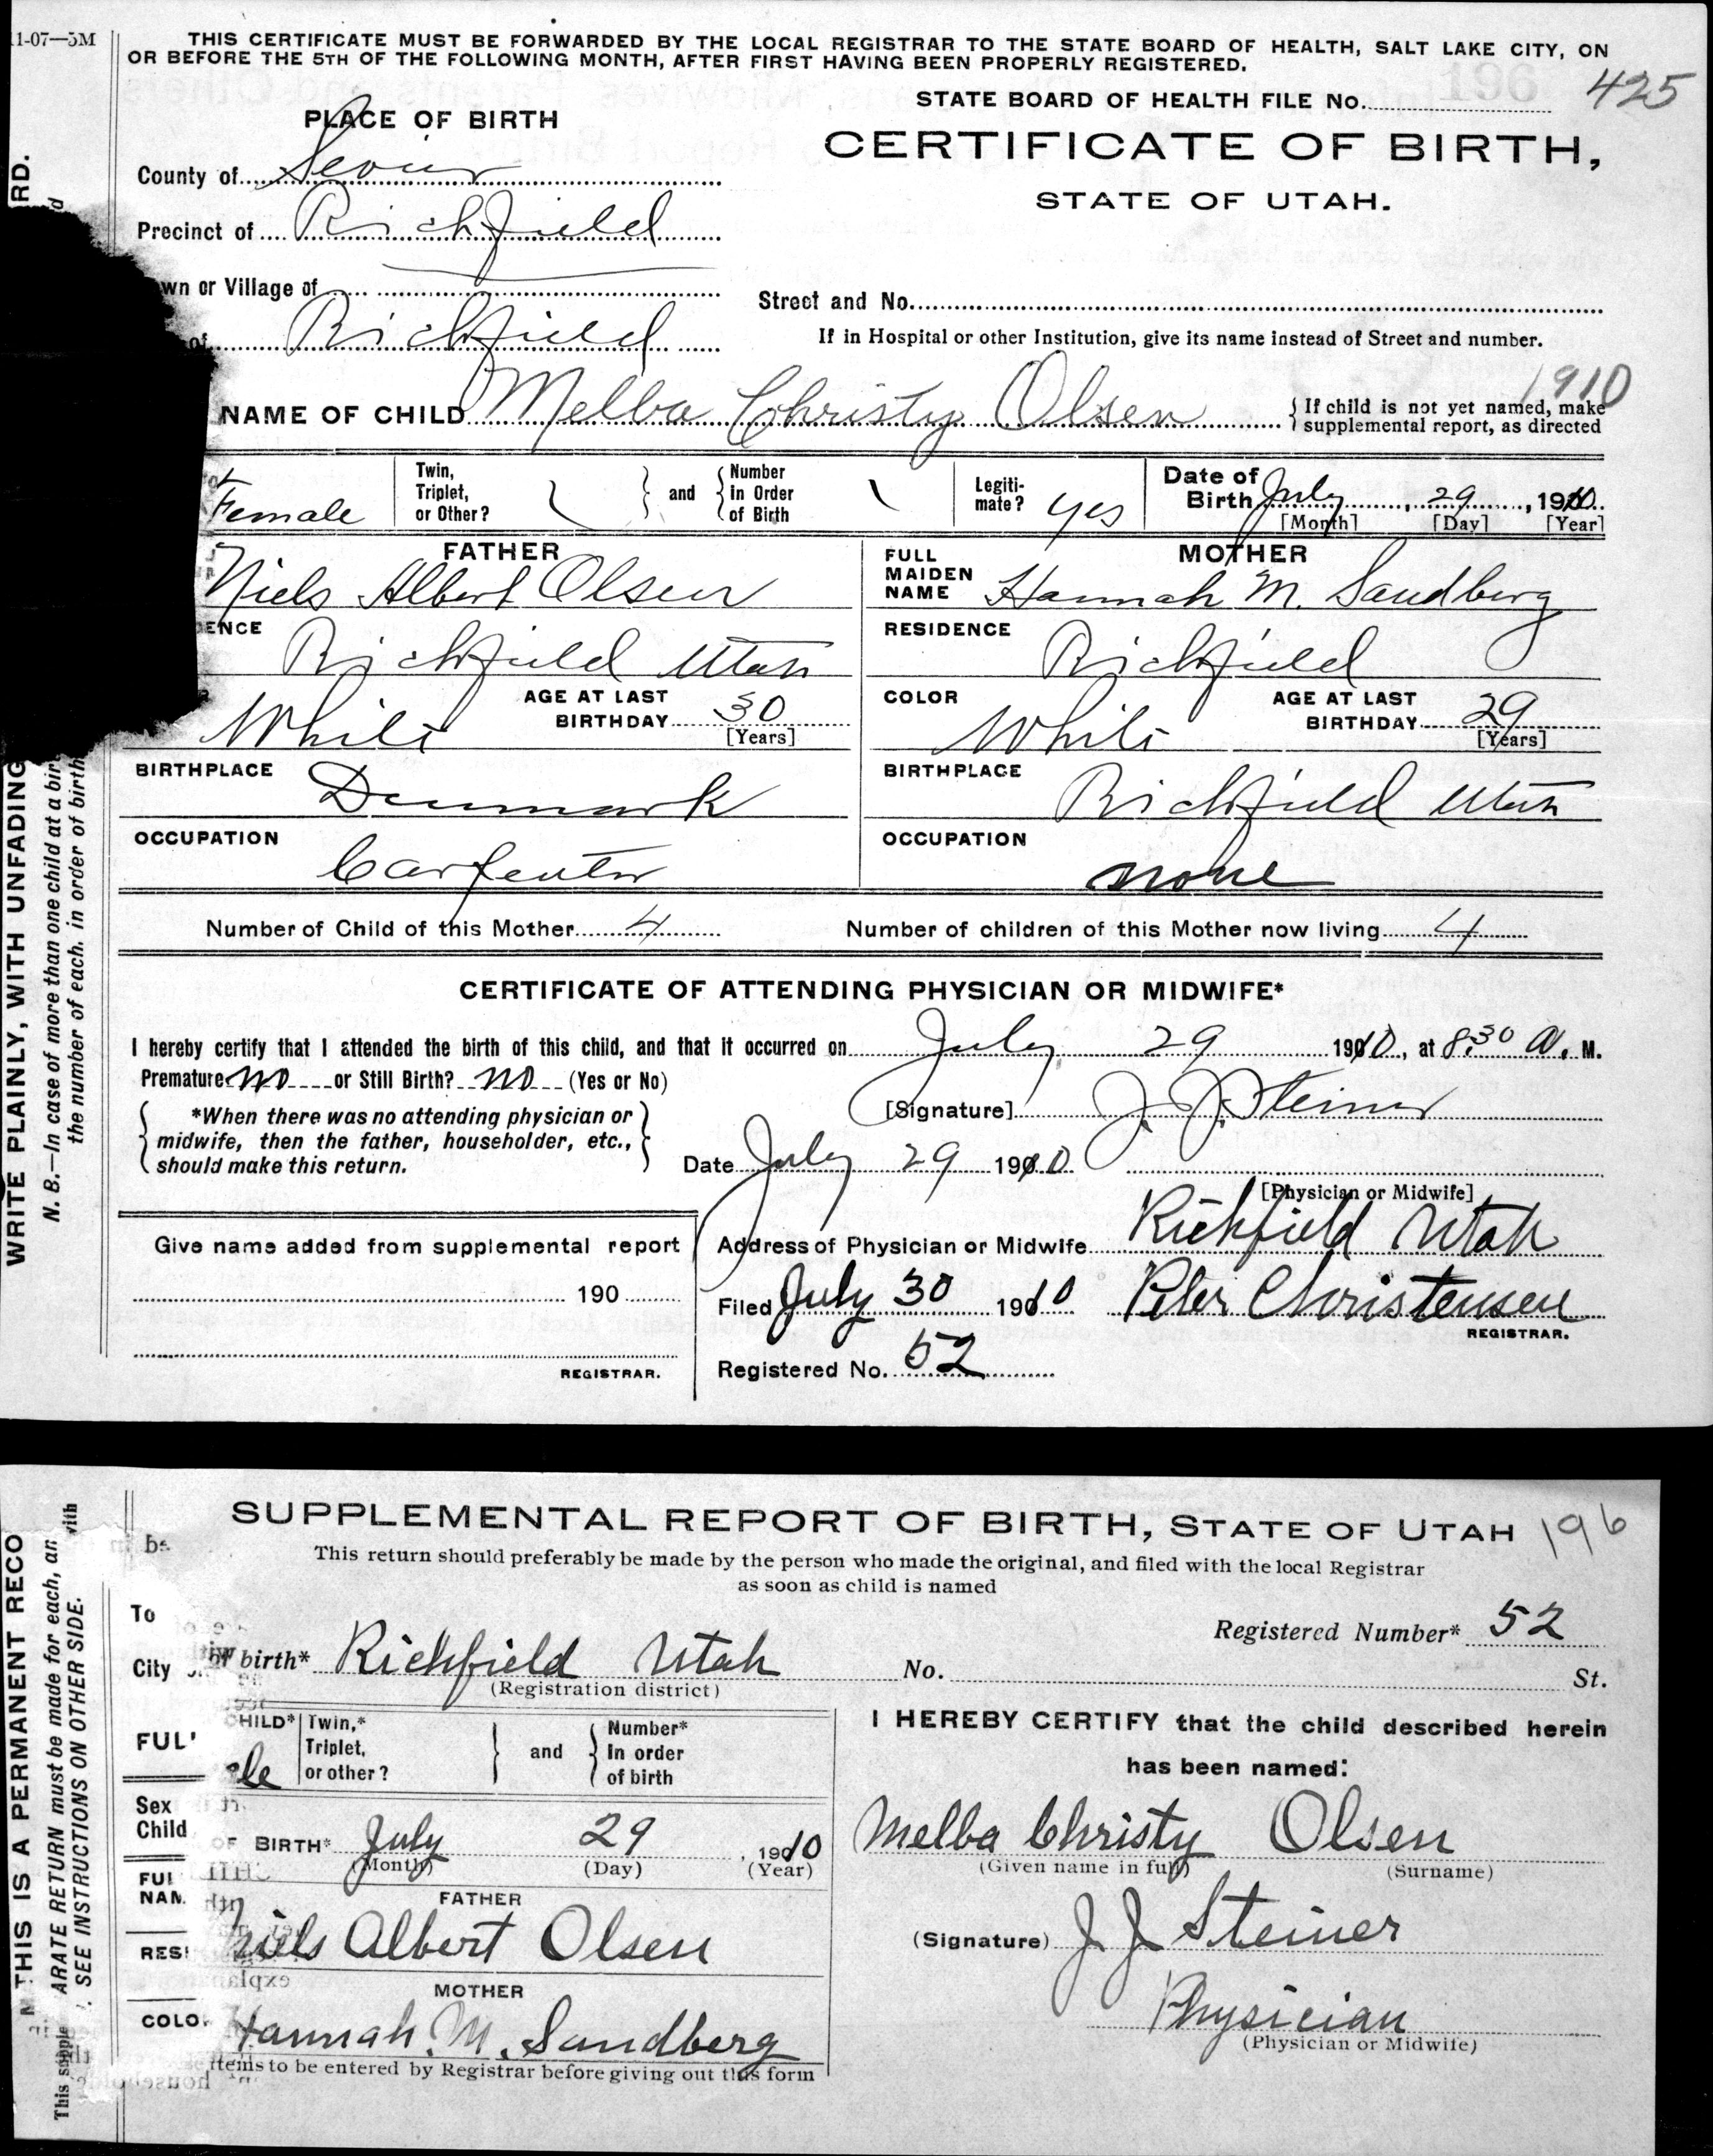 11-07—5M
THIS CERTIFICATE MUST BE FORWARDED BY THE LOCAL REGISTRAR TO THE STATE BOARD OF HEALTH, SALT LAKE CITY, ON
OR BEFORE THE 5TH OF THE FOLLOWING MONTH, AFTER FIRST HAVING BEEN PROPERLY REGISTERED.
STATE BOARD OF HEALTH FILE No. 196 425
PLACE OF BIRTH
CERTIFICATE OF BIRTH,
STATE OF UTAH.
County of Sevier
Precinct of Richfield
wn or Village of
of Richfield
Street and No.
If in Hospital or other Institution, give its name instead of Street and number.
1910
NAME OF CHILD Melba Christy Olsen { If child is not yet named, make
supplemental report, as directed
Female
Twin,
Triplet,
or Other?
and
Number
In Order
of Birth
Legiti-
mate? yes
Date of
Birth July 29, 1910
[Month] [Day] [Year]
FATHER
Niels Albert Olsen
FULL
MAIDEN
NAME
MOTHER
Hannah M. Sandberg
ENCE
Richfield Utah
RESIDENCE
Richfield
White
AGE AT LAST
BIRTHDAY 30
[Years]
COLOR
White
AGE AT LAST
BIRTHDAY 29
[Years]
BIRTHPLACE
Denmark
BIRTHPLACE
Richfield Utah
OCCUPATION
Carpenter
OCCUPATION
none
Number of Child of this Mother 4
Number of children of this Mother now living 4
CERTIFICATE OF ATTENDING PHYSICIAN OR MIDWIFE*
I hereby certify that I attended the birth of this child, and that it occurred on July 29 1910, at 8:30 A. M.
Premature no or Still Birth? no (Yes or No)
*When there was no attending physician or
midwife, then the father, householder, etc.,
should make this return.
[Signature] J. J. Steiner
Date July 29 1910
[Physician or Midwife]
Give name added from supplemental report
190
REGISTRAR.
Address of Physician or Midwife Richfield Utah
Filed July 30 1910 Peter Christensen
REGISTRAR.
Registered No. 52
RD.
WRITE PLAINLY, WITH UNFADING
N. B.—In case of more than one child at a bir
the number of each. in order of birth
SUPPLEMENTAL REPORT OF BIRTH, STATE OF UTAH 196
This return should preferably be made by the person who made the original, and filed with the local Registrar
as soon as child is named
Registered Number* 52
To
City of birth* Richfield Utah No. St.
(Registration district)
FUL
CHILD*
le
Twin,*
Triplet,
or other?
and
Number*
In order
of birth
I HEREBY CERTIFY that the child described herein
has been named:
Sex
Child
OF BIRTH* July 29, 1910
(Month) (Day) (Year)
Melba Christy Olsen
(Given name in full) (Surname)
FUL
NAM
FATHER
Niels Albert Olsen
RESI
(Signature) J J Steiner
MOTHER
COLO
Hannah M. Sandberg
Physician
(Physician or Midwife)
items to be entered by Registrar before giving out this form
THIS IS A PERMANENT RECO
ARATE RETURN must be made for each, an
SEE INSTRUCTIONS ON OTHER SIDE.
This supple